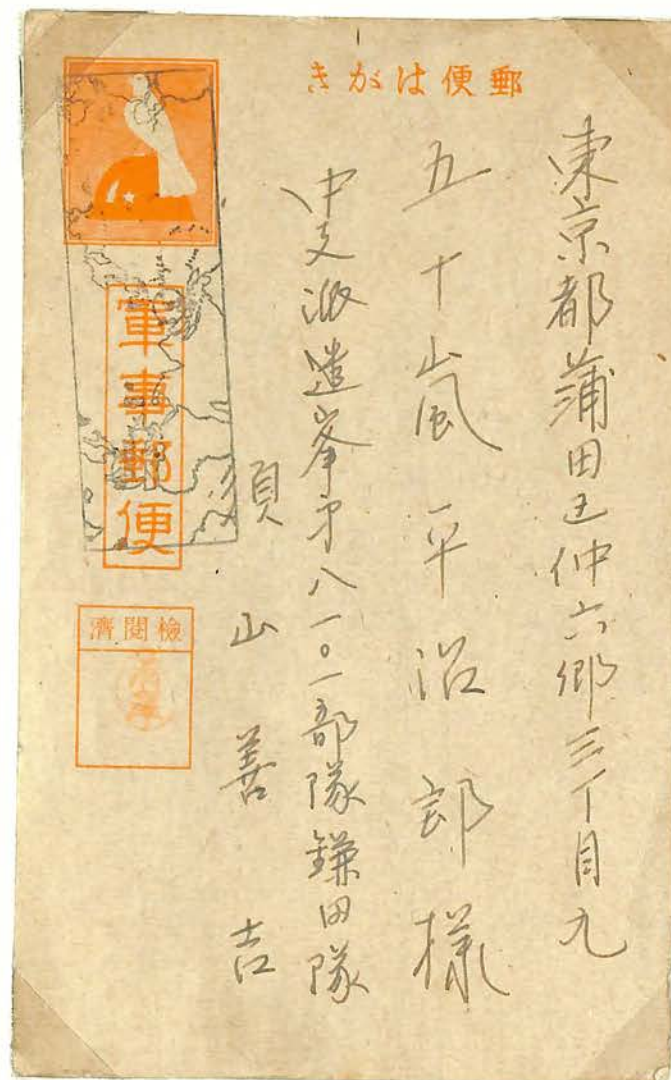 郵便はがき
東京都蒲田区仲六郷三丁目九
五十嵐平治郎様
中支派遣峯第八一〇一部隊鎌田隊
須山善吉
軍事郵便
檢閲濟